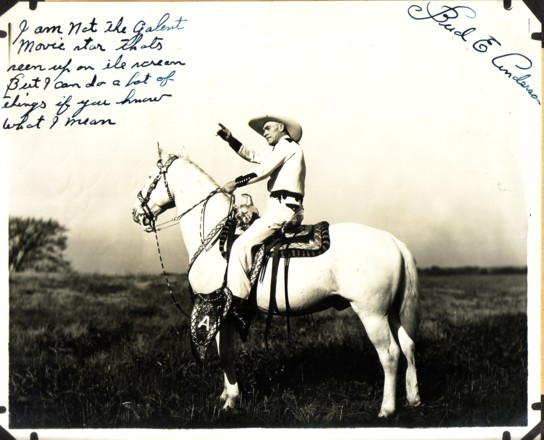 I am Not the Galent
Movie star thats
seen up on the screen
But I can do a lot of
things if you know
what I mean
Bud E Anderson
A